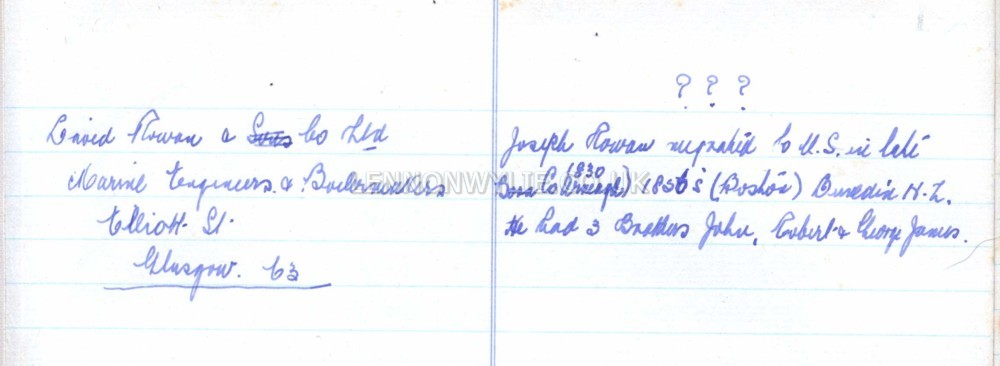 David Rowan & Sons Co Ltd
Marine Engineers & Boilermakers
Elliott St.
Glasgow. C3
? ? ?
Joseph Rowan migrated to U.S. in late
1830
(Born Co Armagh) 1856's (Boston) Dunedin N.Z.
He had 3 Brothers John, Robert & George James.
LENNONWYLIE.CO.UK